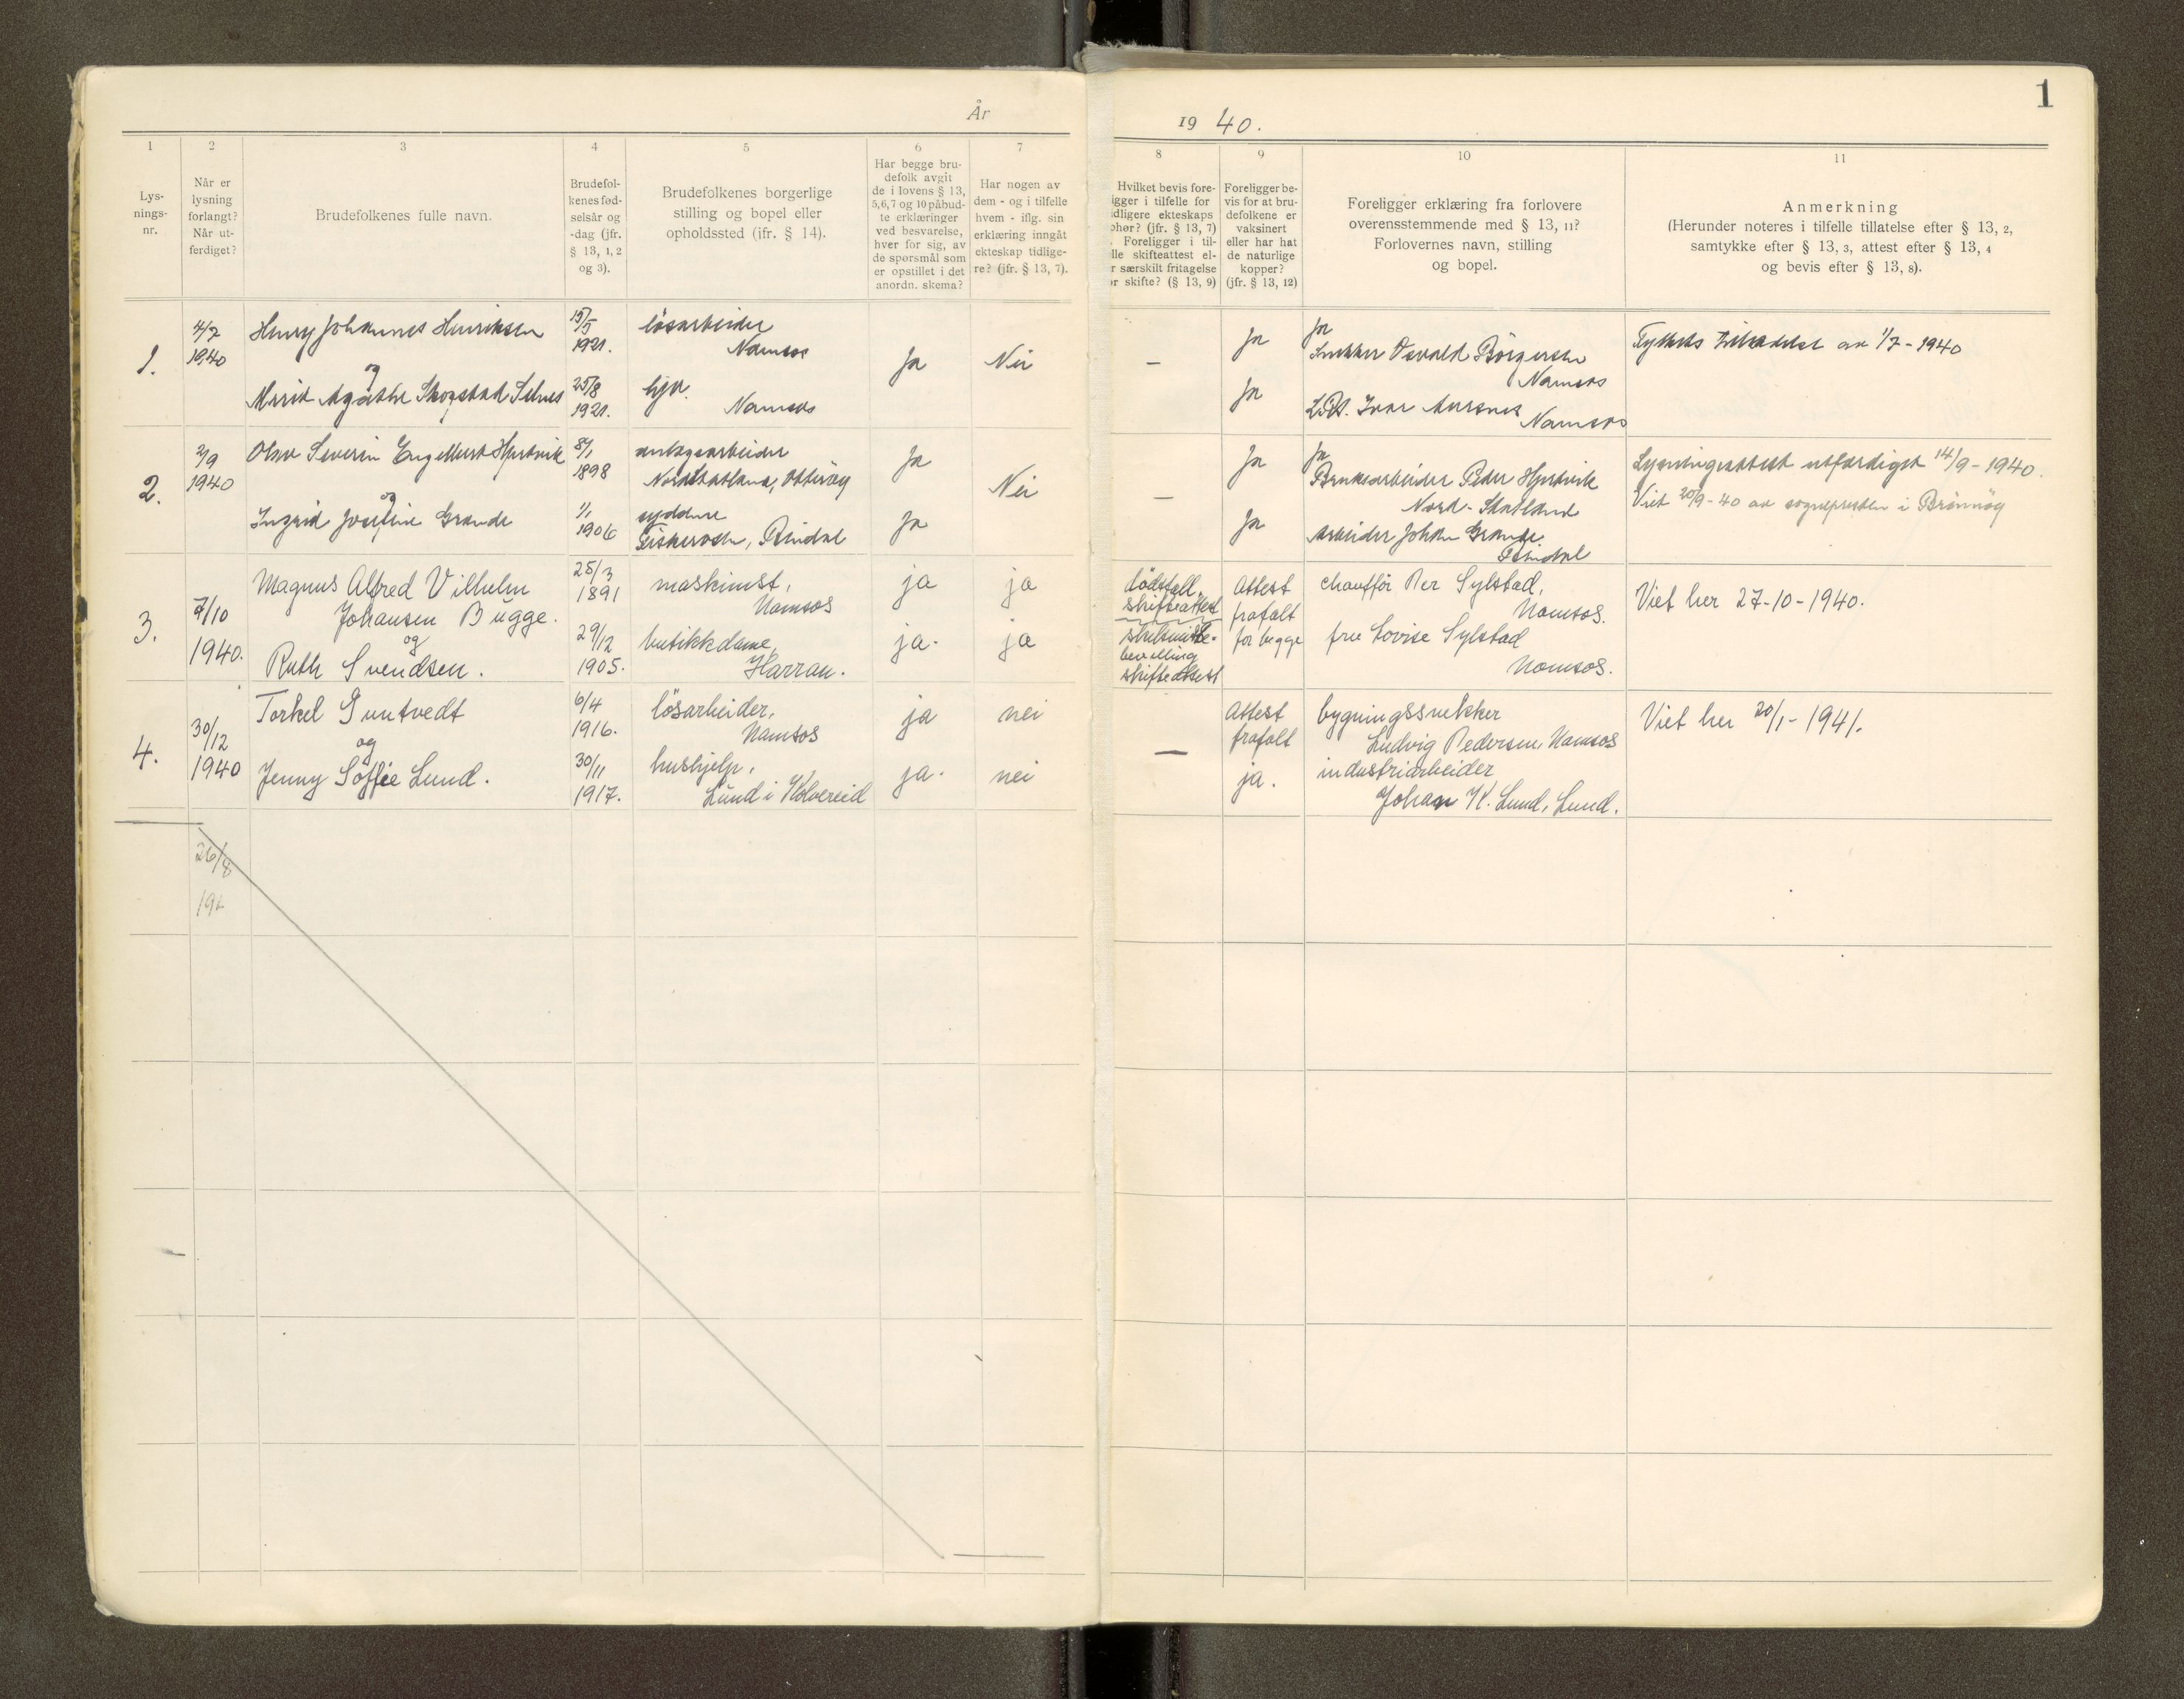 1
År
19 40.
1
Lys-
nings-
nr.
2
Når er
lysning
forlangt?
Når ut-
ferdiget?
3
Brudefolkenes fulle navn.
4
Brudefol-
kenes fød-
selsår og
-dag (jfr.
§ 13, 1, 2
og 3).
5
Brudefolkenes borgerlige
stilling og bopel eller
opholdssted (jfr. § 14).
6
Har begge bru-
defolk avgit
de i lovens § 13,
5,6,7 og 10 påbud-
te erklæringer
ved besvarelse,
hver for sig, av
de spørsmål som
er opstillet i det
anordn. skema?
7
Har nogen av
dem - og i tilfelle
hvem - iflg. sin
erklæring inngåt
ekteskap tidlige-
re? (jfr. § 13, 7).
8
Hvilket bevis fore-
igger i tilfelle for
idligere ekteskaps
ophør? (jfr. § 13, 7)
Foreligger i til-
lle skifteattest el-
r særskilt fritagelse
or skifte? (§ 13, 9)
9
Foreligger be-
vis for at bru-
defolkene er
vaksinert
eller har hat
de naturlige
kopper?
(jfr. § 13, 12)
10
Foreligger erklæring fra forlovere
overensstemmende med § 13, 11?
Forlovernes navn, stilling
og bopel.
11
Anmerkning
(Herunder noteres i tilfelle tillatelse efter § 13, 2,
samtykke efter § 13, 3, attest efter § 13, 4
og bevis efter § 13, 8).
1.
4/7
1940
Henry Johannes Henriksen
og
Marit Agathe Skogstad Selnes
15/5
1921.
25/8
1921.
løsarbeider
Namsos
hjv.
Namsos
Ja
Nei
—
Ja
Ja
Ja
Snekker Osvald Börgersen
Namsos
Ivar Aursnes
Namsos
Fylkets tilladelse av 1/7 - 1940
2.
2/9
1940
Olav Severin Engelbert Hjertvik
og
Ingrid Josefine Grande
8/1
1898
1/1
1906
anlegsarbeider
Nordstatland, Otterøy
syddame
Terråk, Bindal
Ja
Ja
Nei
—
Ja
Ja
Ja
Bruksarbeider Peder Hjertvik
Nord-Statland
Arbeider Johan Grande
Bindal
Lysningsattest utferdiget 14/9 - 1940.
Viet 20/9 - 40 av sognepresten i Brønnøy
3.
7/10
1940.
Magnus Alfred Vilhelm
Johansen Bugge.
og
Ruth Svendsen.
25/3
1891
29/12
1905.
maskinist,
Namsos
butikkdame,
Harran.
ja
ja.
ja
ja
dødsfall,
skifteattest
skilsmisse-
bevilling
skifteattest
Attest
frafalt
for begge
chauffør Per Sylstad,
Namsos.
frue Lovise Sylstad
Namsos.
Viet her 27-10-1940.
4.
30/12
1940
Torkel Guntvedt
og
Jenny Soffie Lund.
6/4
1916.
30/11
1917.
løsarbeider,
Namsos
hushjelp,
Lund i Kolvereid
ja
ja.
nei
nei
—
Attest
frafalt
ja.
bygningssnekker
Ludvig Pedersen, Namsos
industriarbeider
Johan K. Lund, Lund.
Viet her 20/1 - 1941.
26/8
194